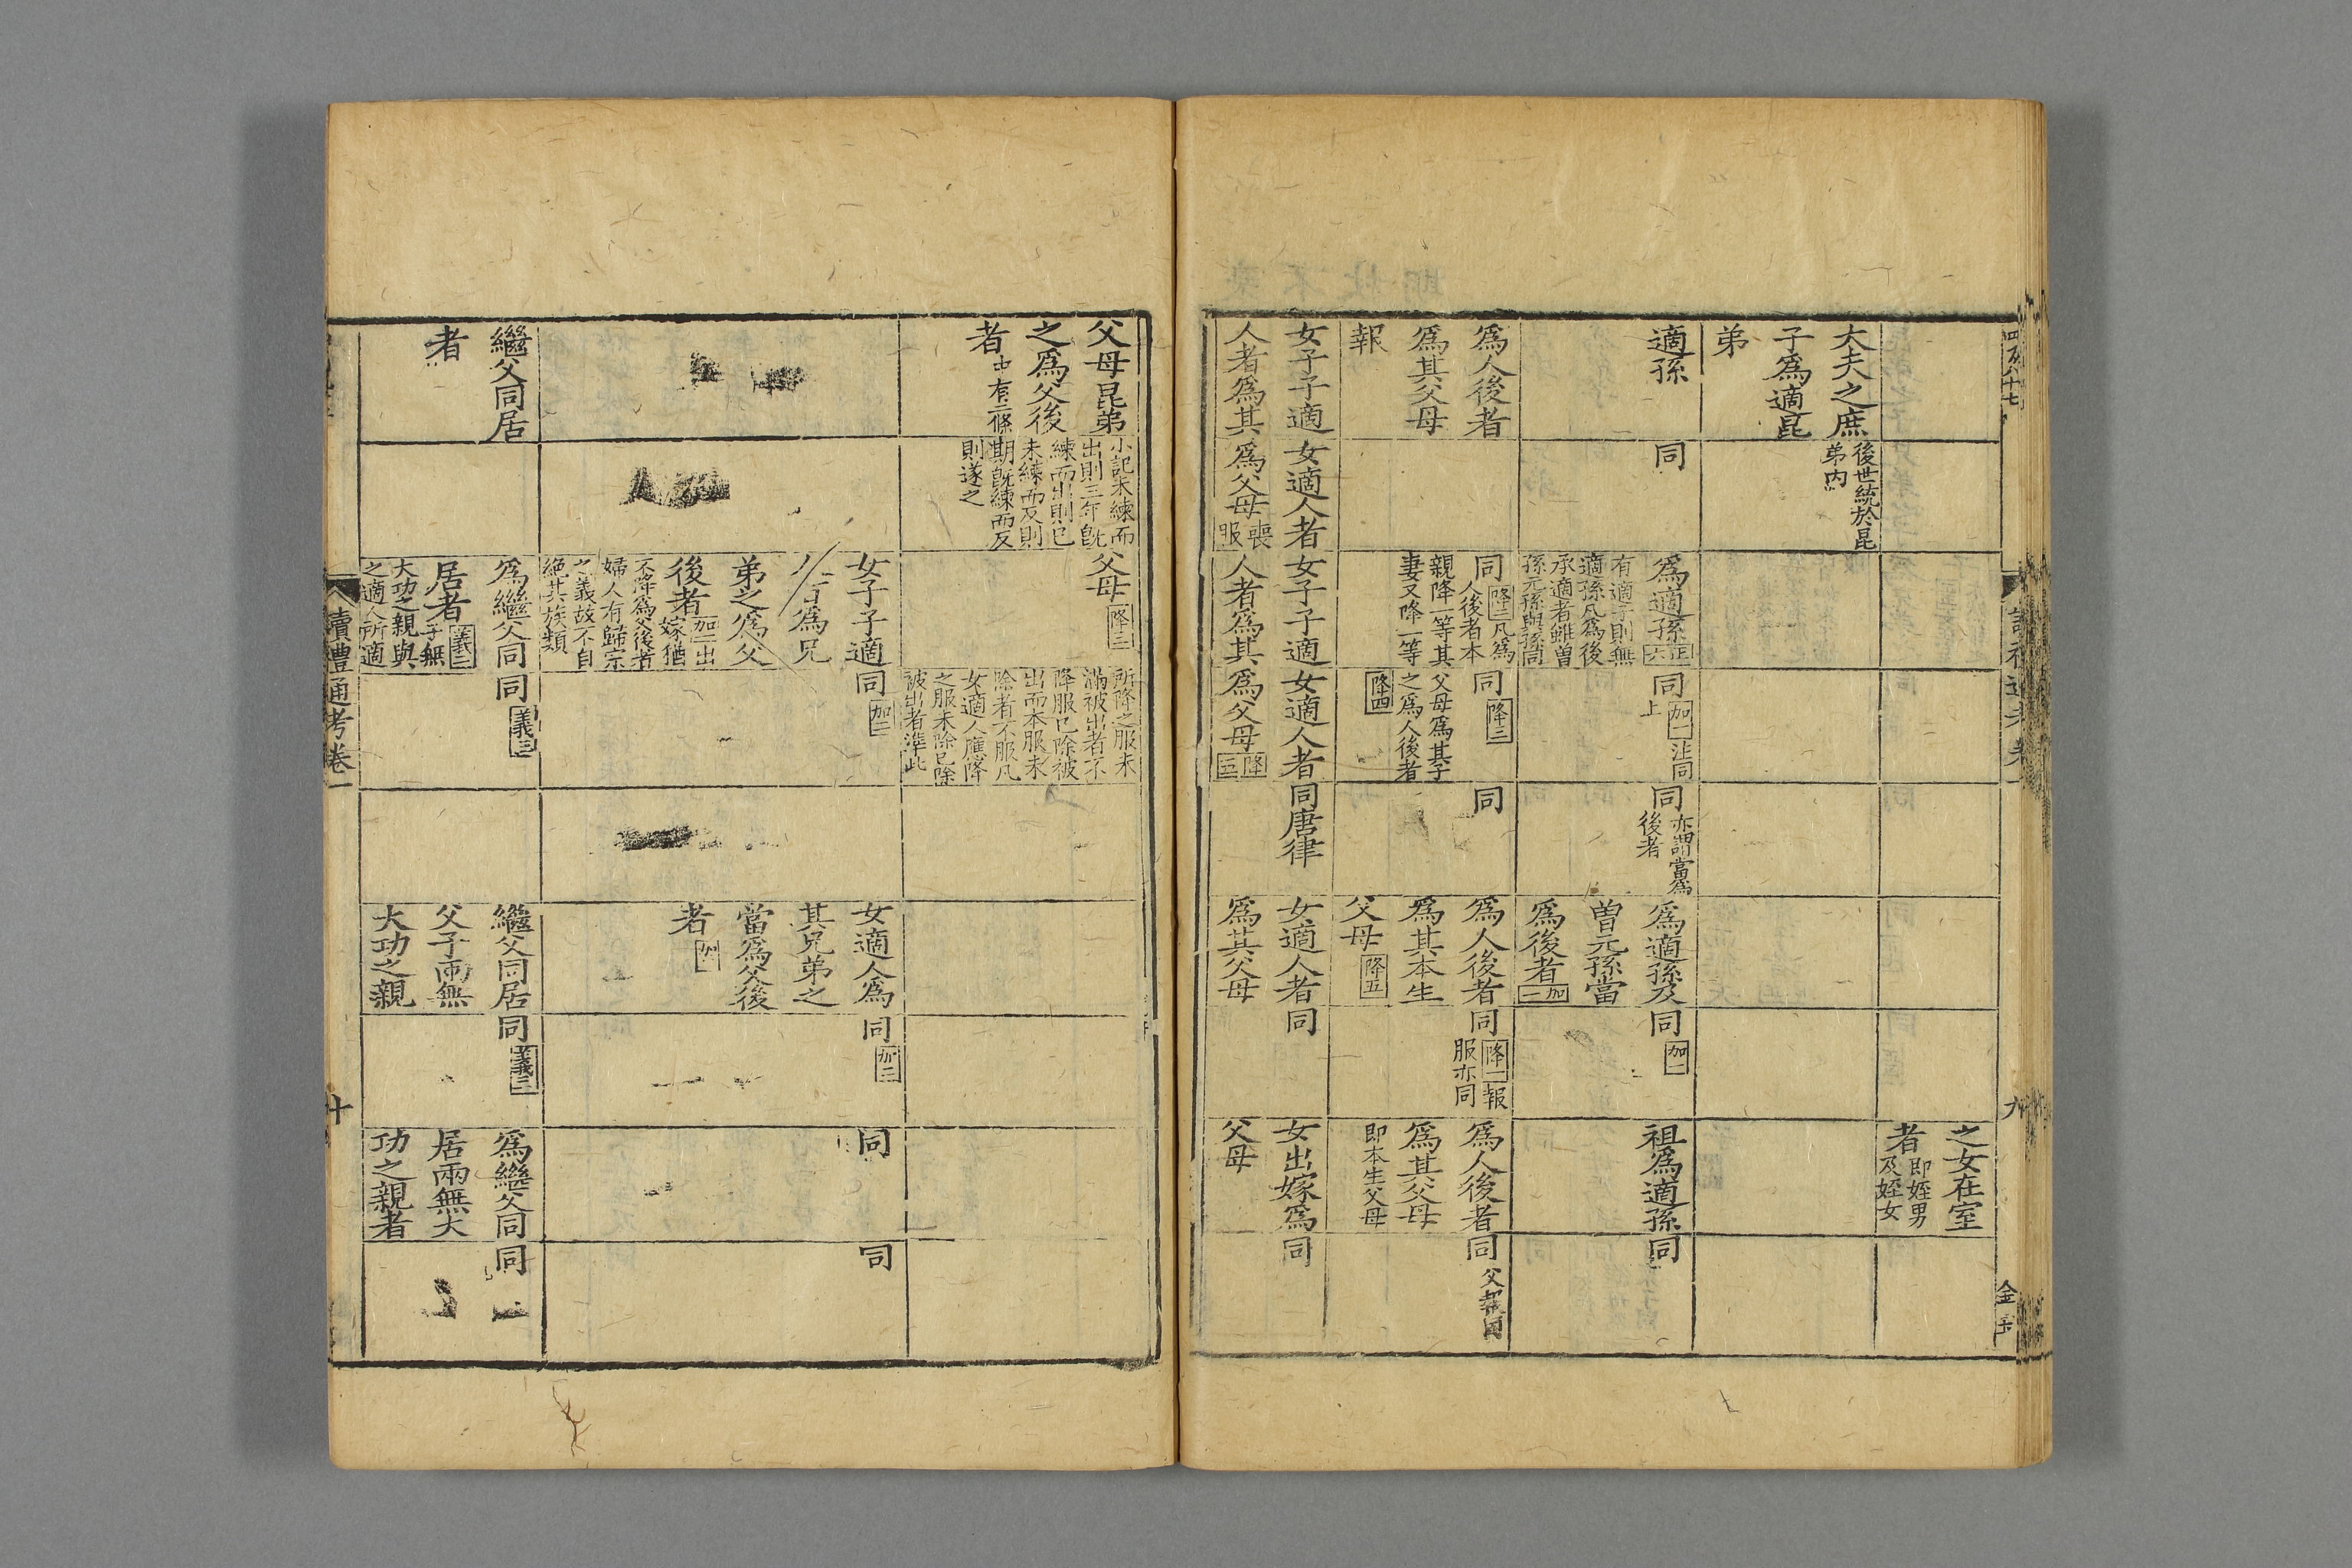 之女在室
者
即姪男
及姪女
大夫之庶
子爲適昆
弟
後世統於昆
弟内
適孫
同
爲適孫
正六
有適子則無
適孫凡爲後
承適者雖曽
孫元孫與孫同
同
加一
注同
上
同
亦謂當爲
後者
爲適孫及
曽元孫當
爲後者
加一
同
加一
祖爲適孫
同
爲人後者
爲其父母
報
同
降二
凡爲
人後者本
親降一等其
妻又降一等
同
降三
父母爲其子
之爲人後者
降四
同
爲人後者
爲其本生
父母
降五
同
降一
報
服亦同
爲人後者
爲其父母
即本生父母
同
父報同
女子子適
人者爲其
女適人者
爲父母
喪服
女子子適
人者爲其
女適人者
爲父母
降五
同唐律
女適人者
爲其父母
同
女出嫁爲
父母
同
九
父母昆弟
之爲父後
者
中有二條
小記未練而
出則三年旣
練而出則已
未練而反則
期旣練而反
則遂之
父母
降三
所降之服未
滿被出者不
降服已除被
出而本服未
除者不服凡
女適人應降
之服未除已除
被出者準此
女子子適
爲兄
弟之爲父
後者
加二
出
嫁猶
不降爲父後者
婦人有歸宗
之義故不自
絕其族類
同
加二
女適人爲
其兄弟之
當爲父後
者
加一
同
加二
同
同
繼父同居
者
爲繼父同
居者
義二
子無
大功之親與
之適人所適
同
義三
繼父同居
父子兩無
大功之親
同
義三
爲繼父同
居兩無大
功之親者
同
讀禮通考卷一
十